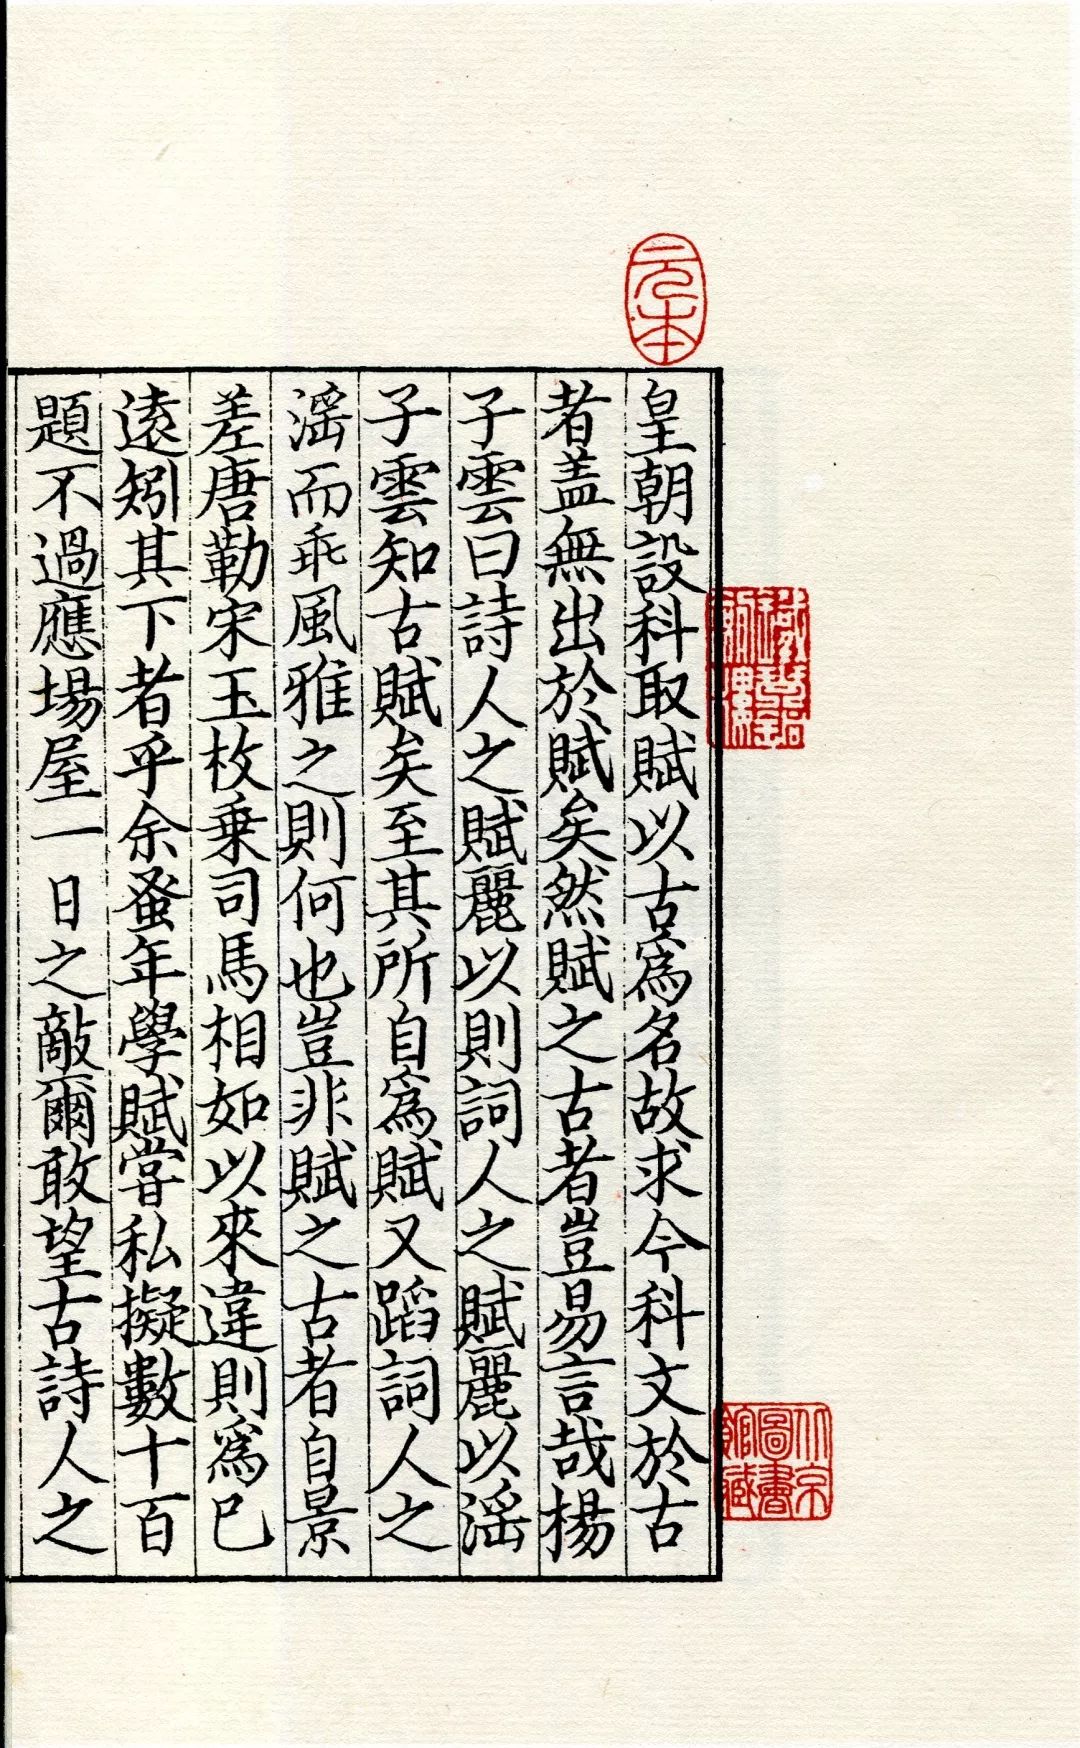 元本
皇朝設科取賦以古爲名故求今科文於古
者盖無出於賦矣然賦之古者豈易言哉楊
子雲曰詩人之賦麗以則詞人之賦麗以滛
子雲知古賦矣至其所自爲賦又蹈詞人之
滛而乖風雅之則何也豈非賦之古者自景
差唐勒宋玉枚乗司馬相如以來違則爲已
遠矧其下者乎余蚤年學賦甞私擬數十百
題不過應場屋一日之敵爾敢望古詩人之
北京圖書館藏